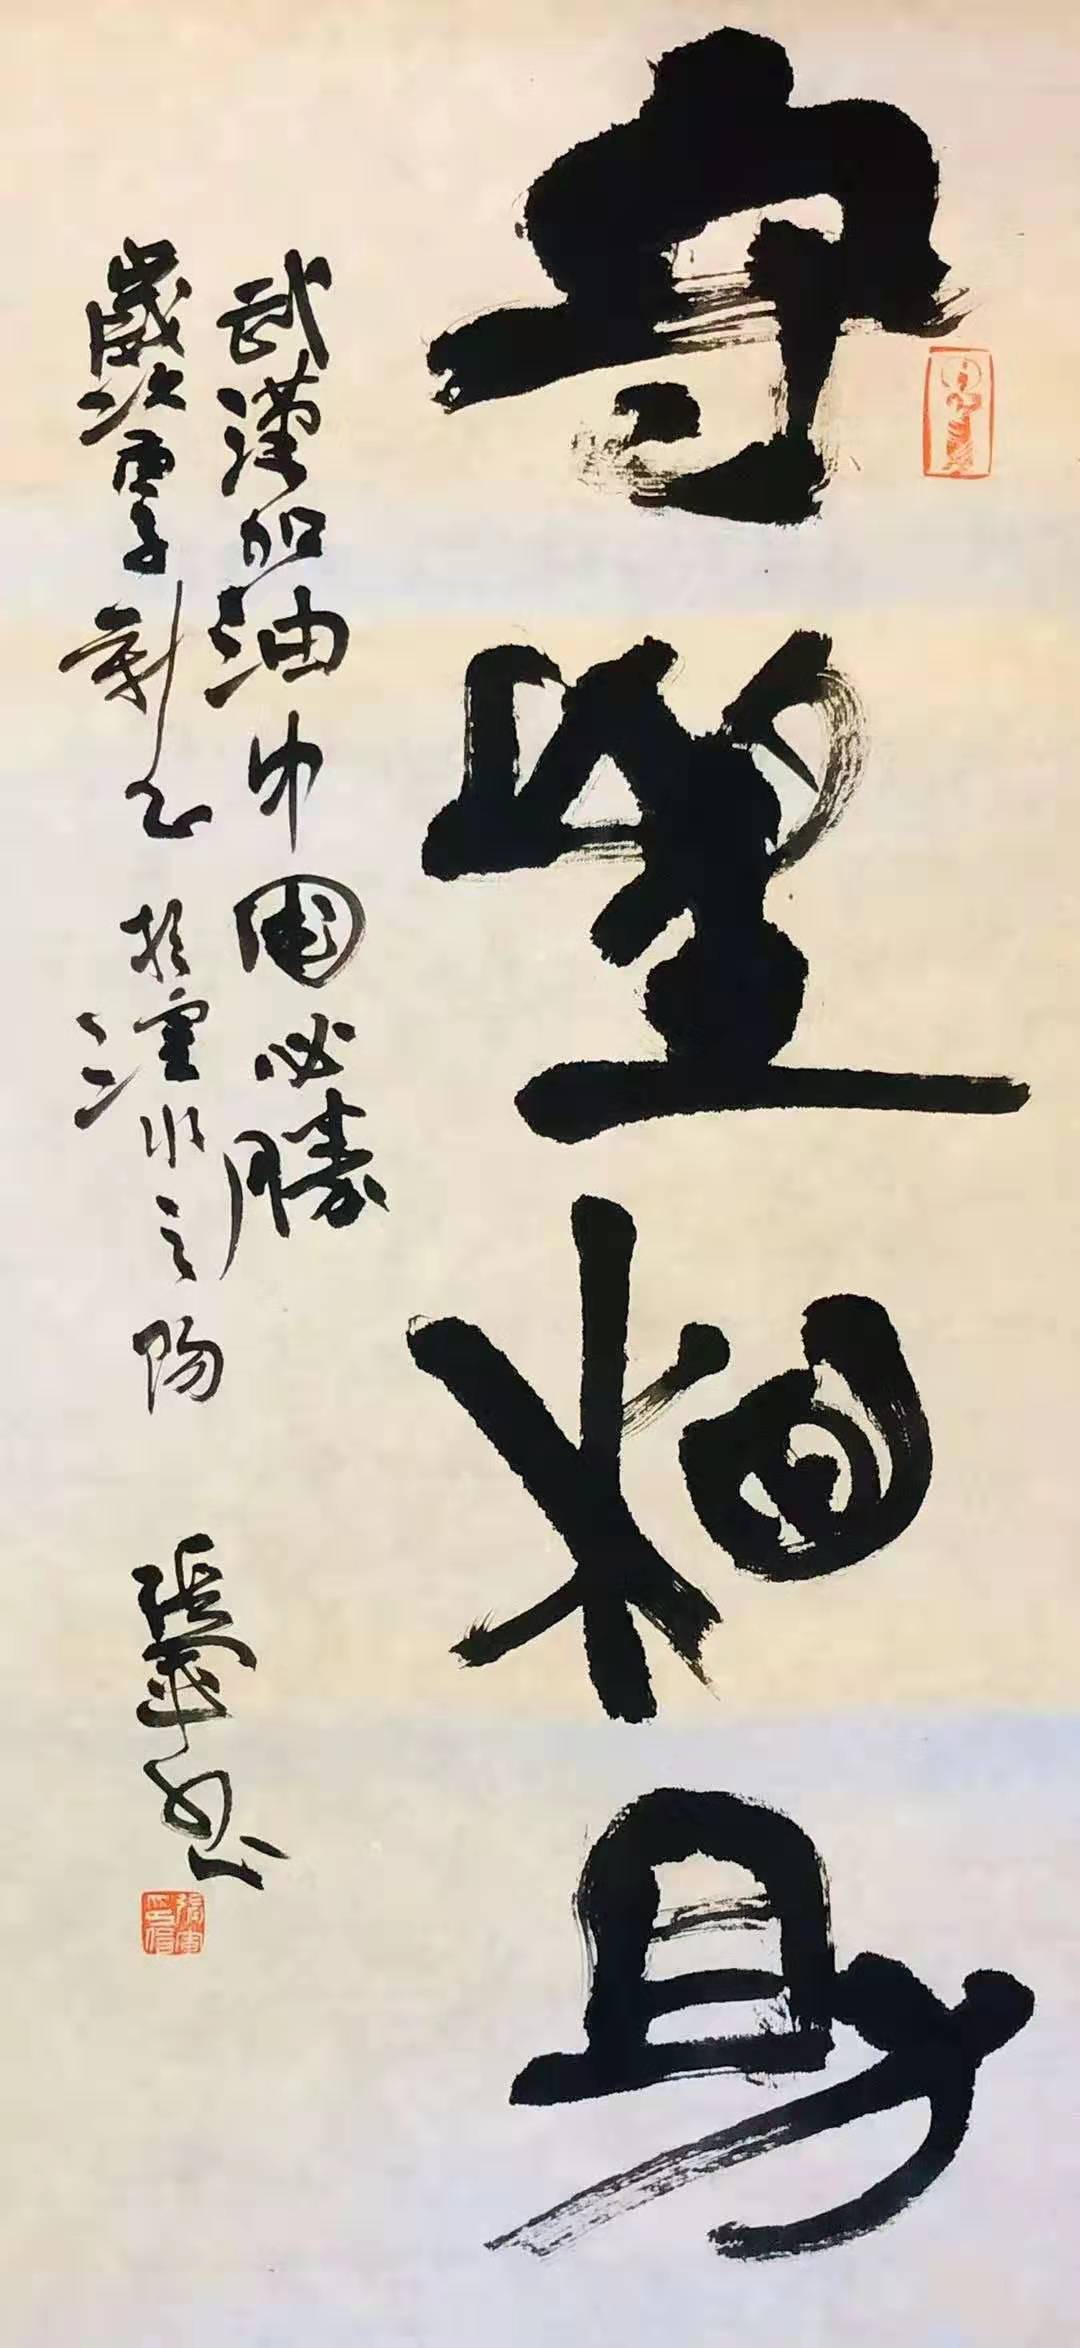 守望相助
武漢加油中國必勝
歲次庚子新正於水之陽
張書